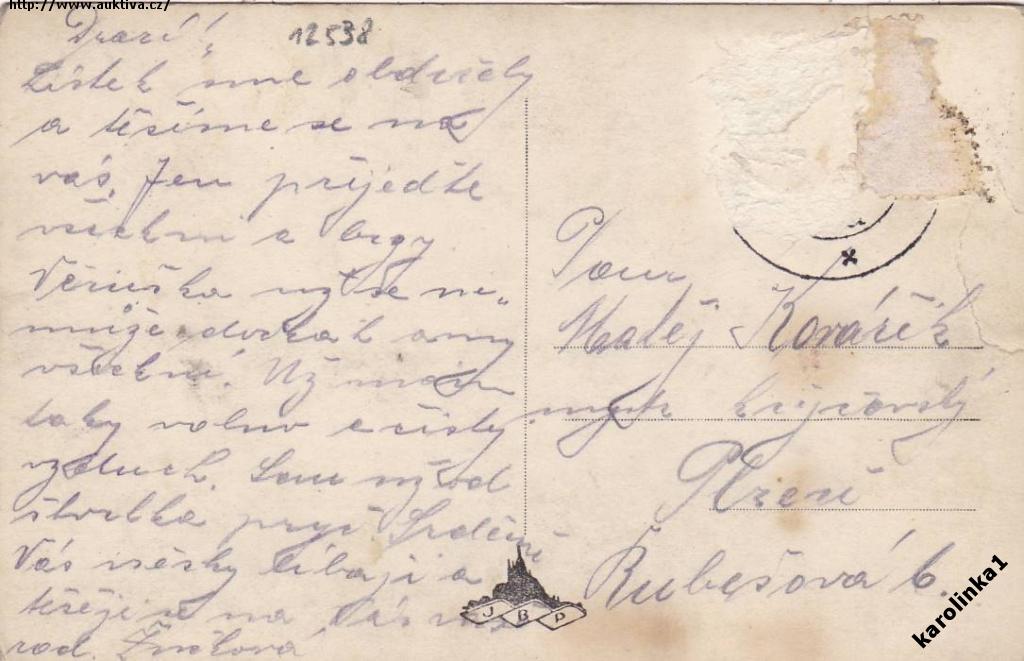 http://www.auktiva.cz/
12538
Drazí!
Lístek sme obdrželi
a těšíme se na
vás. Jen přijeďte
všichni a brzy
Věruška už se ne„
může dočkat a my
všichni. Už mám
taky volno a čistý
vzduch. Sou už od
štvrtka pryč Srdečně
Vás všecky líbají a
těšejí se na Vás
rod.
Pan
Matěj Kovářík
krejčovský
Plzeň
Rubešová 6.
J B P
karolinka1